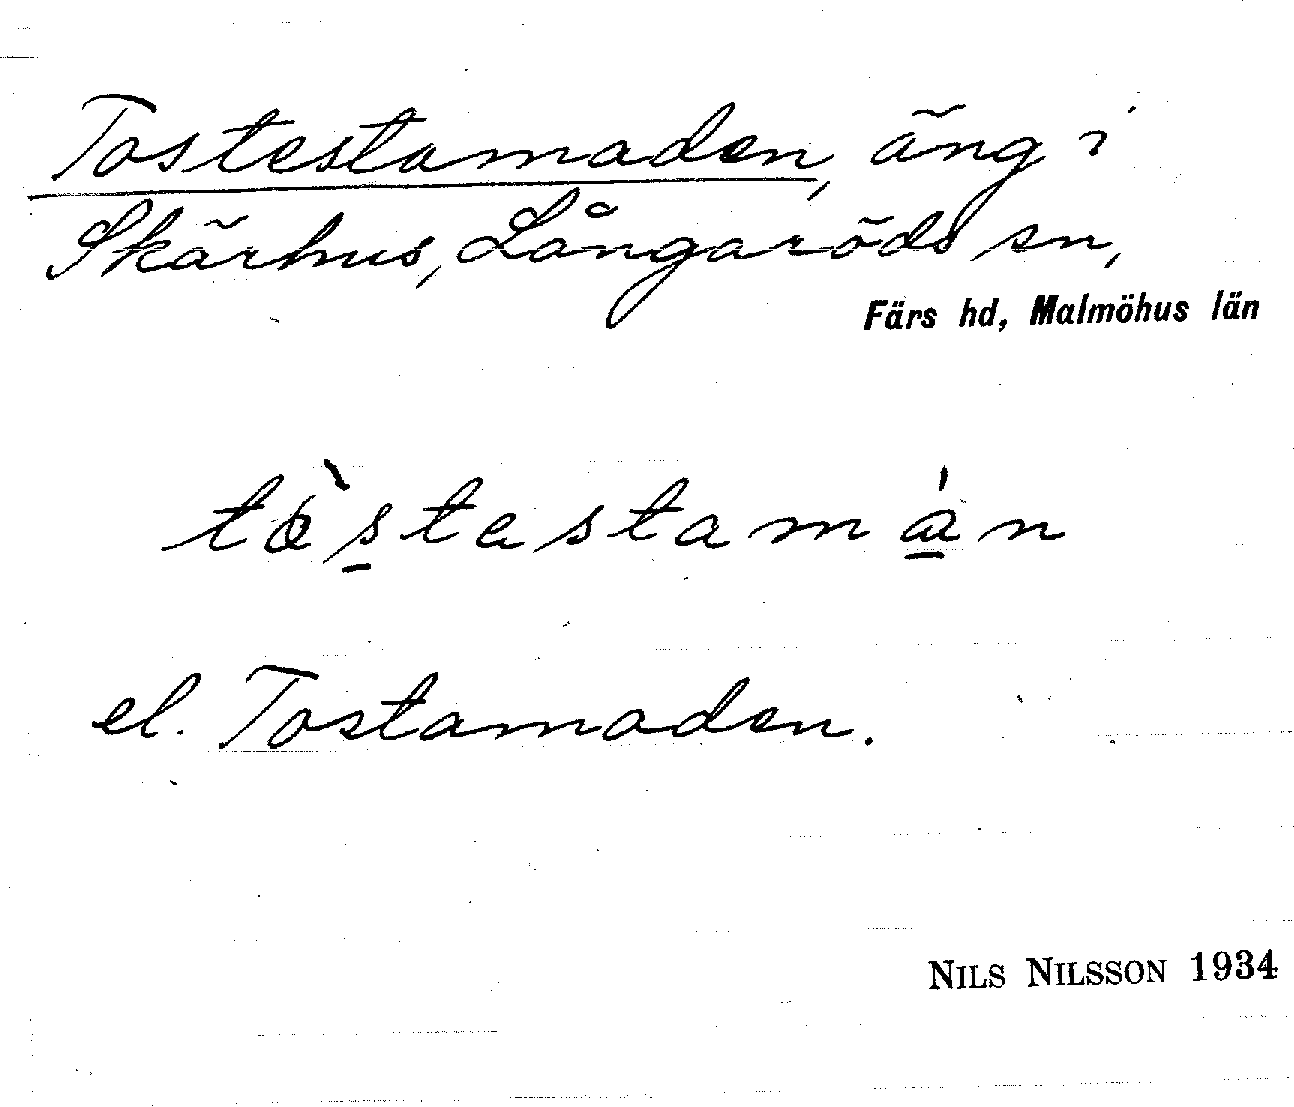 Tostestamaden, äng i
Skärhus, Långaröds sn,
Färs hd, Malmöhus län
tòstestamán
el. Tostamaden.
NILS NILSSON 1934